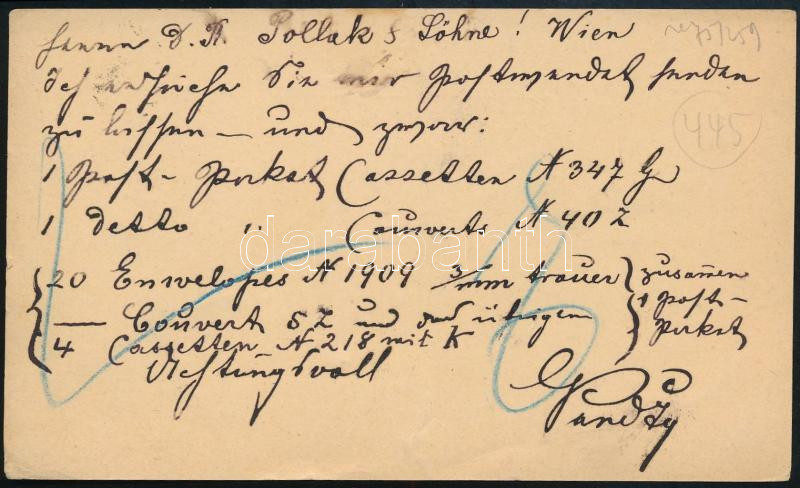 Herrn D. R. Pollak & Söhne! Wien
Ich ersuche Sie mir Postwendet senden
zu lassen – und zwar:
1 Post-Packet Cassetten N 347 G
1 detto " Couverts N 40 Z
20 Envelopes N 1909 3/mm trauer } zusammen
Couvert S Z und das übrigen } 1 Post-
4 Cassetten N 218 mit K } Packet
Achtungsvoll
445
darabanth